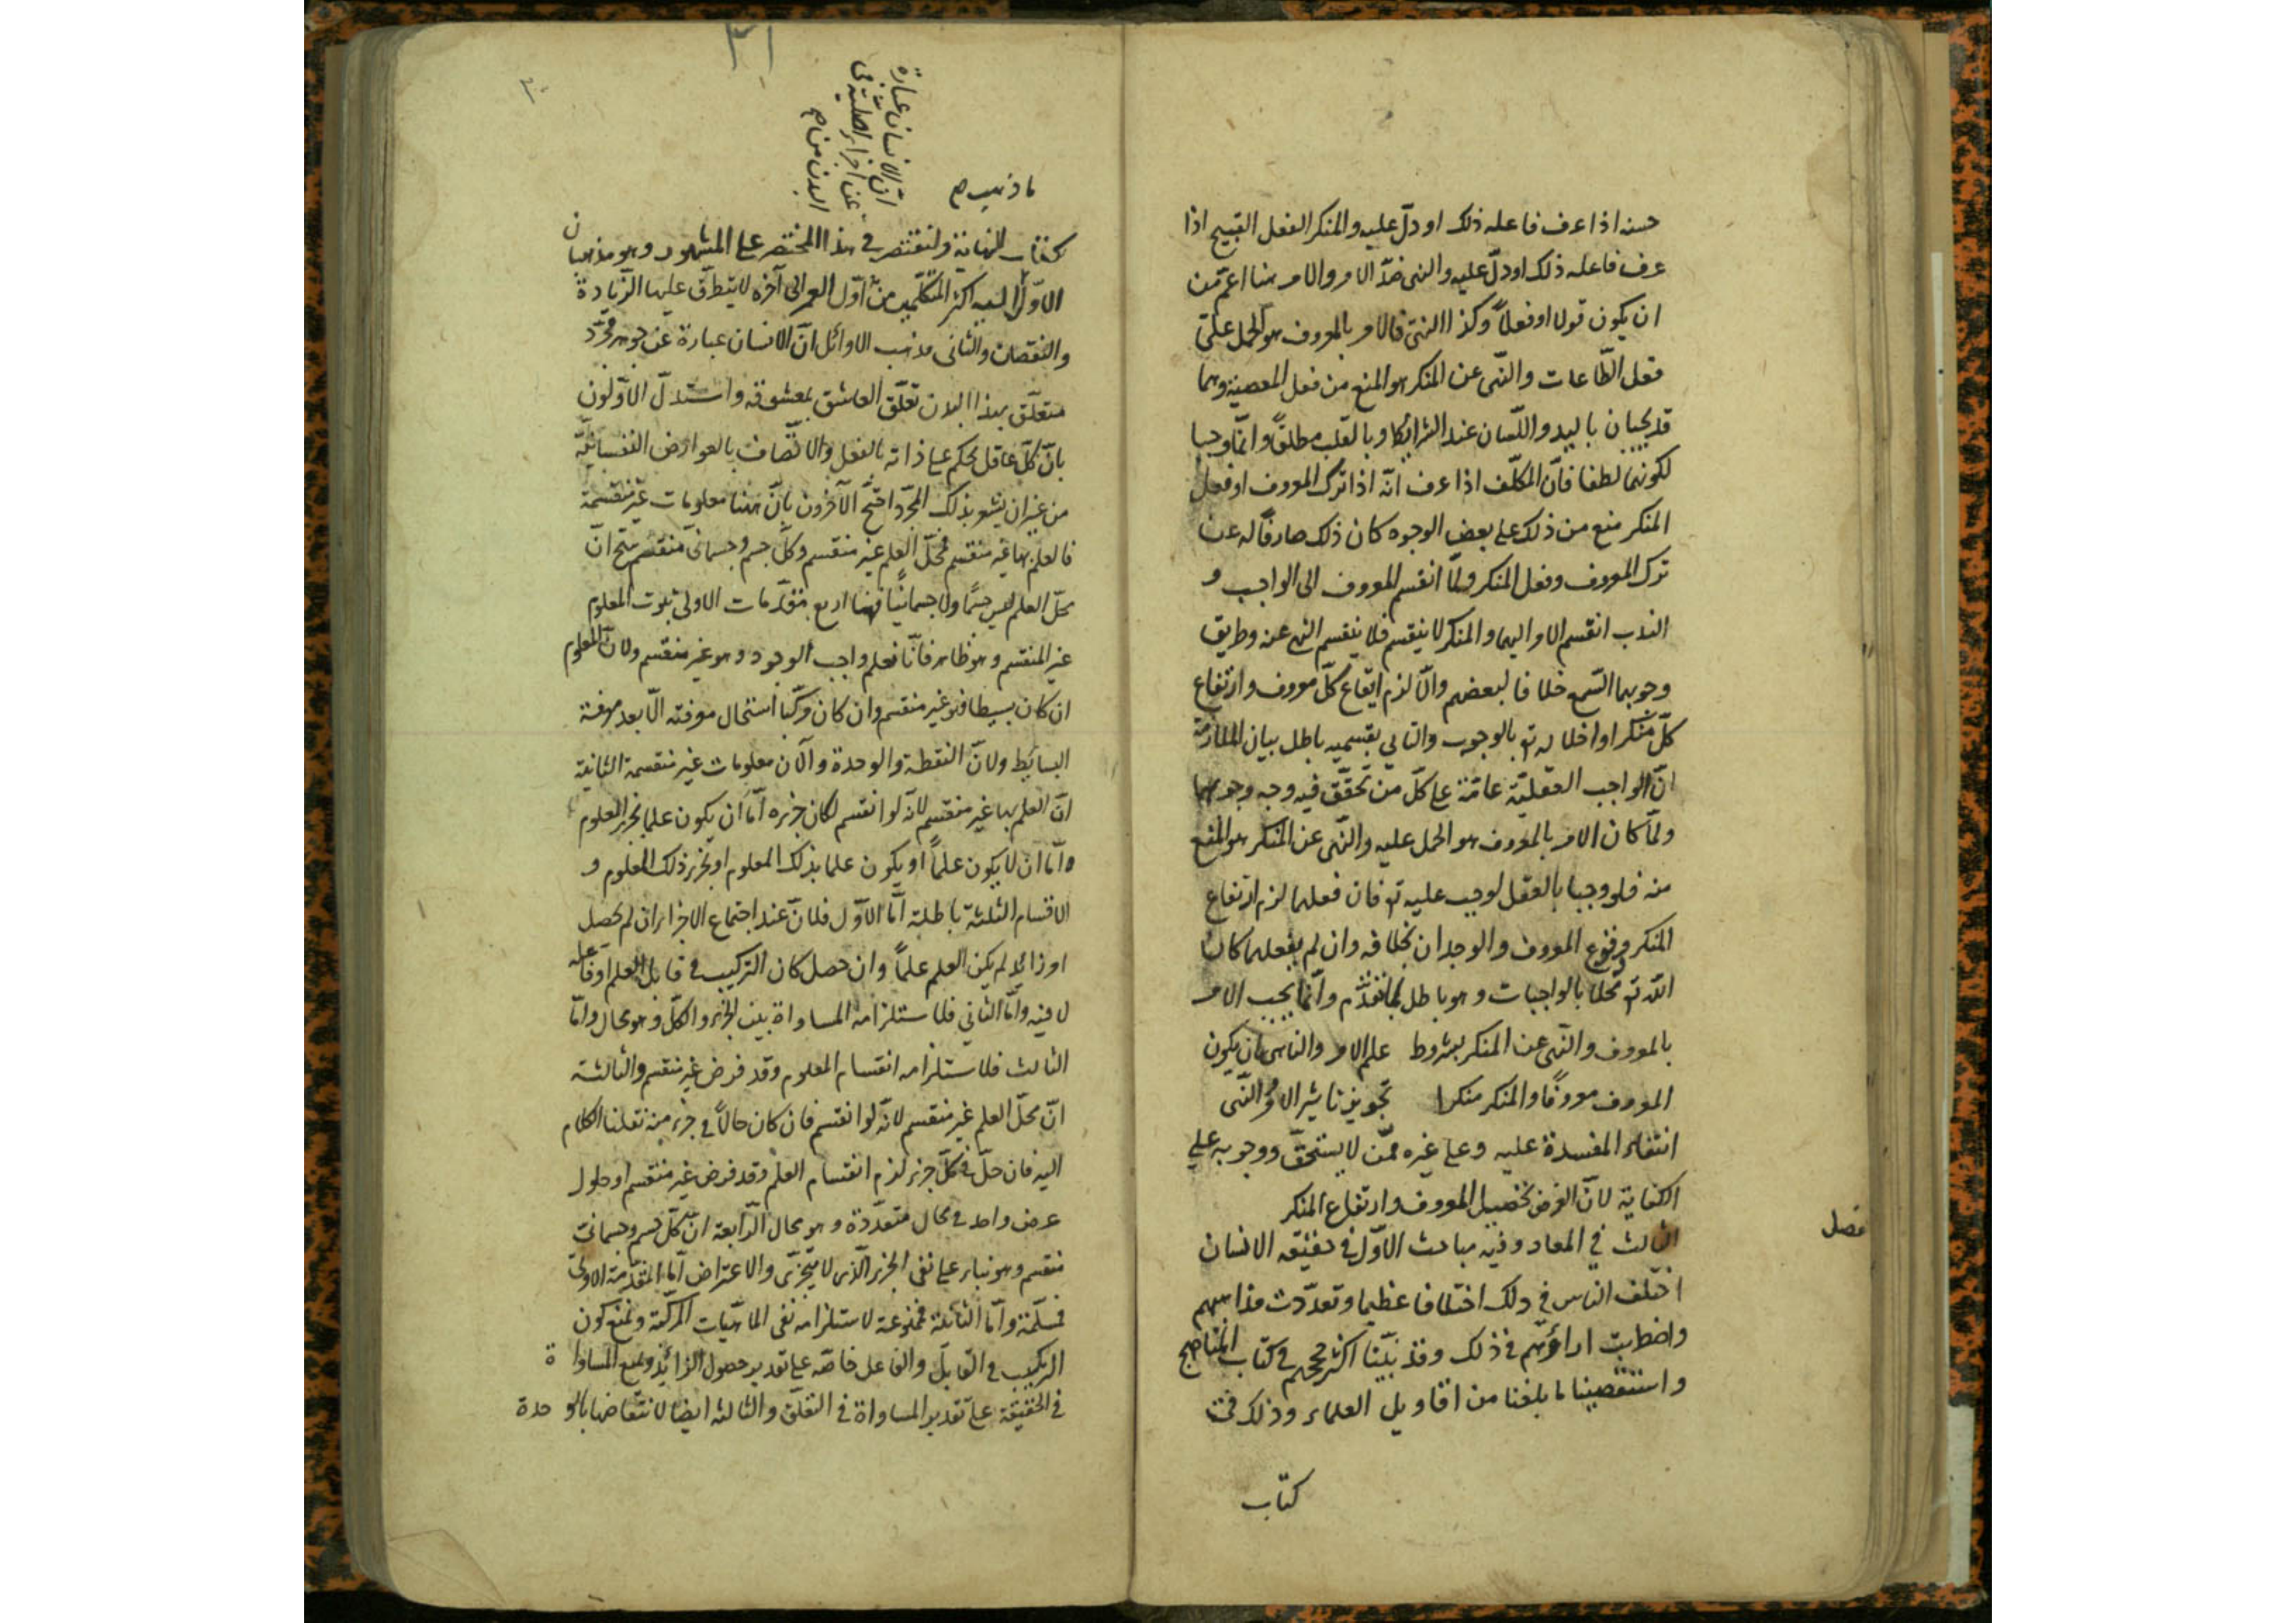 حسنه اذا عرف فاعله ذلك او دلّ عليه والمنكر الفعل القبيح اذا
عرف فاعله ذلك او دلّ عليه والنهى ضدّ الامر والامر هنا اعمّ من
ان يكون قولا او فعلاً وكذا النهى فالامر بالمعروف هو الحمل على
فعل الطّاعات والنّهى عن المنكر هو المنع من فعل المعصية وهما
قد يجبان باليد واللّسان عند الشرائط وبالقلب مطلقاً وانّما وجبا
لكونهما لطفا فانّ المكلّف اذا عرف انّه اذا ترك المعروف او فعل
المنكر منع من ذلك على بعض الوجوه كان ذلك صارفاً له عن
ترك المعروف وفعل المنكر ولمّا انقسم المعروف الى الواجب و
الندب انقسم الامر اليهما والمنكر لا ينقسم فلا ينقسم النهى عنه وطريق
وجوبهما السّمع خلافا لبعضهم والّا لزم ايقاع كلّ معروف وارتفاع
كلّ منكر او اخلاله تع بالوجوب والتالى بقسميه باطل بيان الملازمة
انّ الواجب العقليّة عامّة على كلّ من تحقّق فيه وجه وجوبهما
ولمّا كان الامر بالمعروف هو الحمل عليه والنّهى عن المنكر هو المنع
منه فلو وجبا بالعقل لوجب عليه تع فان فعلهما لزم ارتفاع
المنكر ووقوع المعروف والوجدان بخلافه وان لم يفعلهما كان
اللّه تع مخلا بالواجبات وهو باطل لما تقدّم وانّما يجب الامر
بالمعروف والنّهى عن المنكر بشروط علم الامر والناهى بان يكون
المعروف معروفاً والمنكر منكرا تجويز تاثير الامر والنّهى
انتفاء المفسدة عليه وعلى غيره ممّن لا يستحقّ ووجوبه على
الكفاية لانّ الغرض تحصيل المعروف وارتفاع المنكر
فصل
الثالث في المعاد وفيه مباحث الاوّل في حقيقة الانسان
اختلف الناس في ذلك اختلافا عظيما وتعدّدت مذاهبهم
واضطربت اراؤهم في ذلك وقد بيّنّا اكثر حججهم في كتاب المناهج
واستقصينا ما بلغنا من اقاويل العلماء وذلك في
كتاب
٣١
٣٠
انّ الانسان عبارة
عن اجزاء اصليّة في
البدن من
ما ذهب
كتاب النهاية ولنقتصر في هذا المختصر على المشهور وهو مذهبان
الاوّل اليه اكثر المتكلّمين من اوّل العمر الى آخره لا يتطرّق عليها الزّيادة
والنقصان والثانى مذهب الاوائل انّ الانسان عبارة عن جوهر مجرّد
متعلّق بهذا البدن تعلّق العاشق بمعشوقه واستدلّ الاوّلون
بانّ كلّ عاقل يحكم على ذاته بالفعل والاتّصاف بالعوارض النفسانيّة
من غير ان يشعر بذلك المجرّد احتجّ الآخرون بانّ هنا معلومات غير منقسمة
فالعلم بها غير منقسم فمحلّ العلم غير منقسم وكلّ جسم وجسمانى منقسم ينتج انّ
محلّ العلم ليس جسماً ولا جسمانيّاً فهنا اربع مقدّمات الاولى ثبوت المعلوم
غير المنقسم وهو ظاهر فانّا نعلم واجب الوجود وهو غير منقسم ولانّ المعلوم
ان كان بسيطا فهو غير منقسم وان كان مركّبا استحال معرفته الّا بعد معرفة
البسايط ولانّ النقطة والوحدة والآن معلومات غير منقسمة الثانية
انّ العلم بها غير منقسم لانّه لو انقسم لكان جزءه امّا ان يكون علما بجزء المعلوم
وامّا ان لا يكون علماً او يكون علما بذلك المعلوم او بجزء ذلك المعلوم و
الاقسام الثلثة باطلة امّا الاوّل فلانّ عند اجتماع الاجزاء ان لم يحصل
امر زائد لم يكن العلم علماً وان حصل كان التركيب في قابل العلم او فاعله
لا فيه وامّا الثانى فلاستلزامه المساواة بين الجزء والكلّ وهو محال وامّا
الثالث فلاستلزامه انقسام المعلوم وقد فرض غير منقسم والثالثة
انّ محلّ العلم غير منقسم لانّه لو انقسم فان كان حالّاً في جزء منه نقلنا الكلام
اليه فان حلّ في كلّ جزء لزم انقسام العلم وقد فرض غير منقسم او حلول
عرض واحد في محال متعدّدة وهو محال الرّابعة انّ كلّ جسم وجسمانى
منقسم وهو بناء على نفى الجزء الّذى لا يتجزّى والاعتراض امّا المقدّمة الاولى
فمسلّمة وامّا الثانية فممنوعة لاستلزامه نفى الماهيّات المركّبة ونمنع كون
التركيب في القابل والفاعل خاصّة على تقدير حصول الزائد ونمنع المساواة
في الحقيقة على تقدير المساواة في التعلّق والثالثة ايضا لانتقاضها بالوحدة